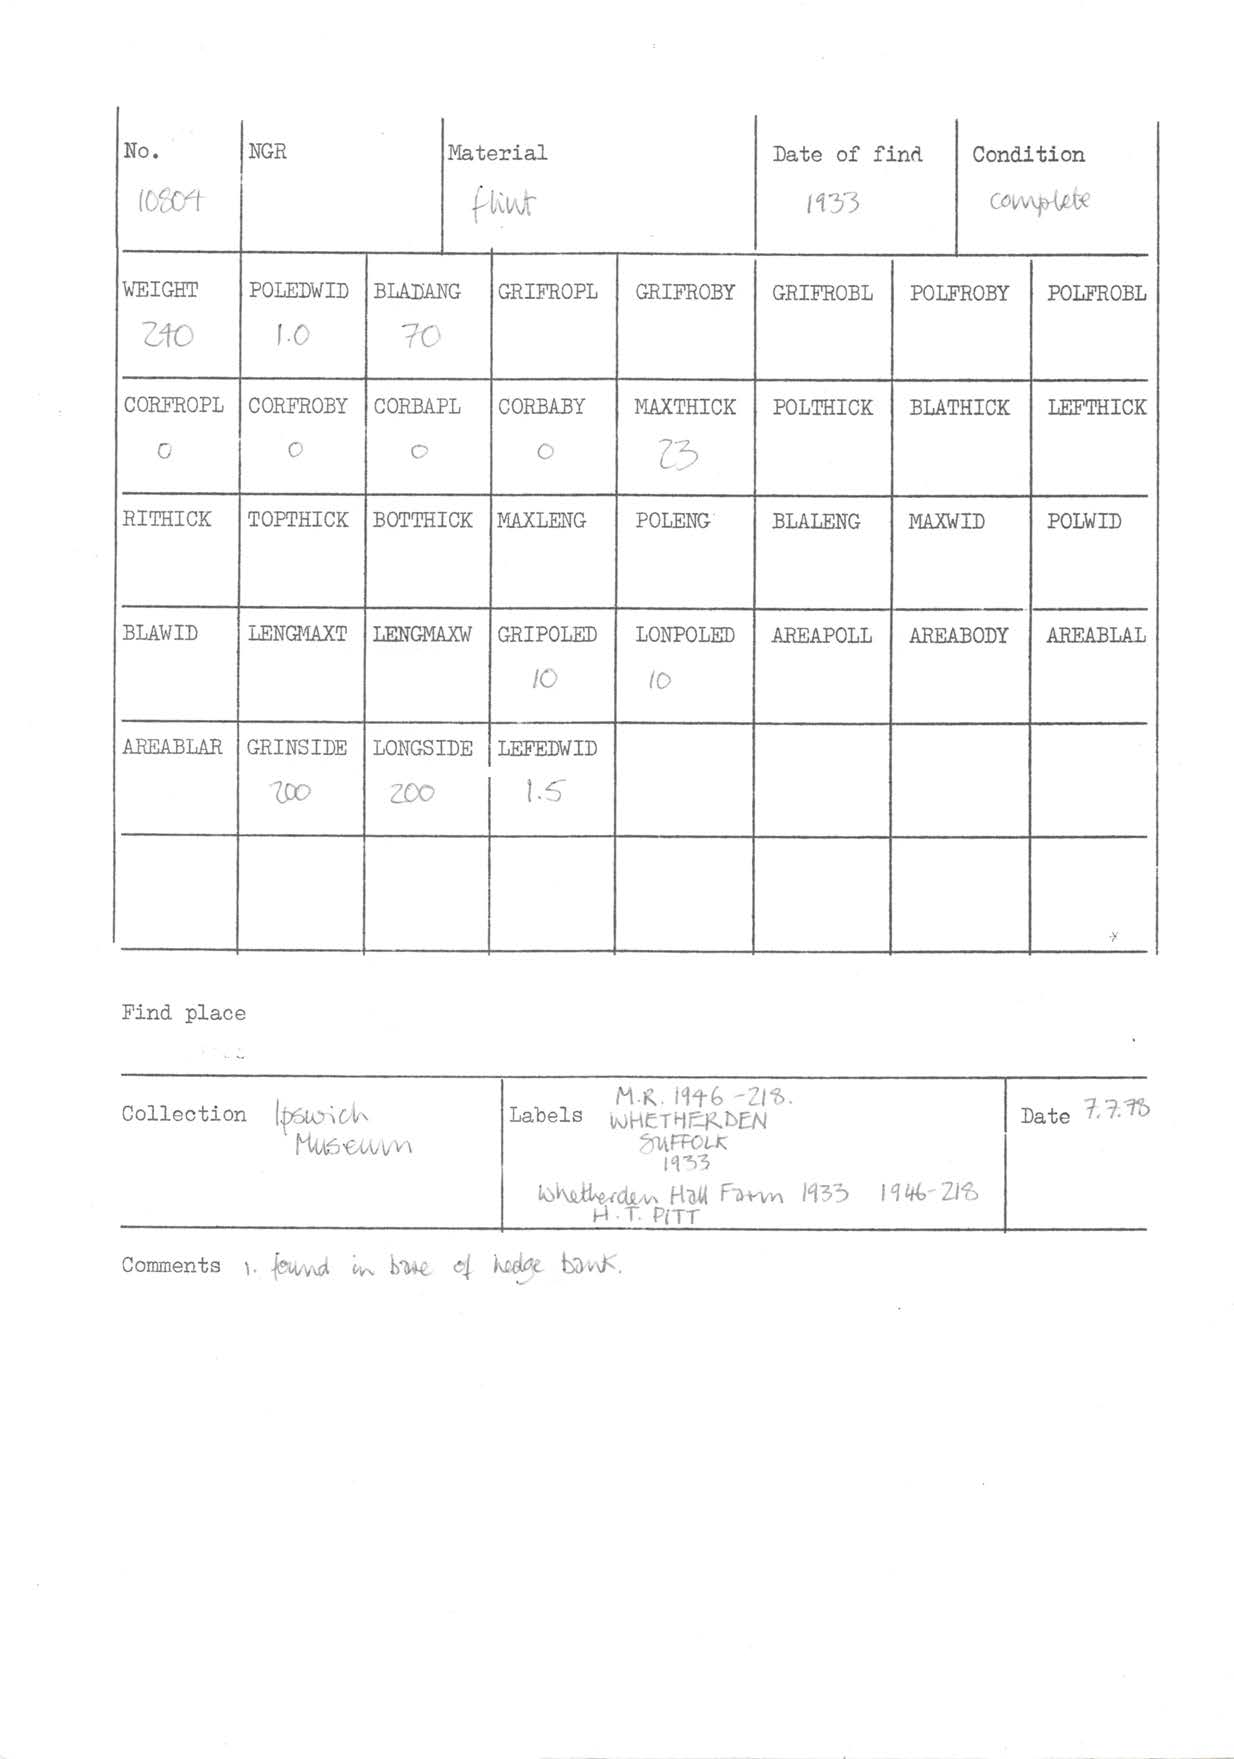 No. NGR Material Date of find Condition
10804 flint 1933 complete
WEIGHT POLEDWID BLADANG GRIFROPL GRIFROBY GRIFROBL POLFROBY POLFROBL
240 1.0 70
CORFROPL CORFROBY CORBAPL CORBABY MAXTHICK POLTHICK BLATHICK LEFTHICK
0 0 0 0 23
RITHICK TOPTHICK BOTTHICK MAXLENG POLENG BLALENG MAXWID POLWID
BLAWID LENGMAXT LENGMAXW GRIPOLED LONPOLED AREAPOLL AREABODY AREABLAL
10 10
AREABLAR GRINSIDE LONGSIDE LEFEDWID
200 200 1.5
Find place
Collection Ipswich
Museum
Labels M.R. 1946-218.
WHETHERDEN
SUFFOLK
1933
Whetherden Hall Farm 1933 1946-218
H.T. PITT
Date 7.7.78
Comments 1. found in base of hedge bank.